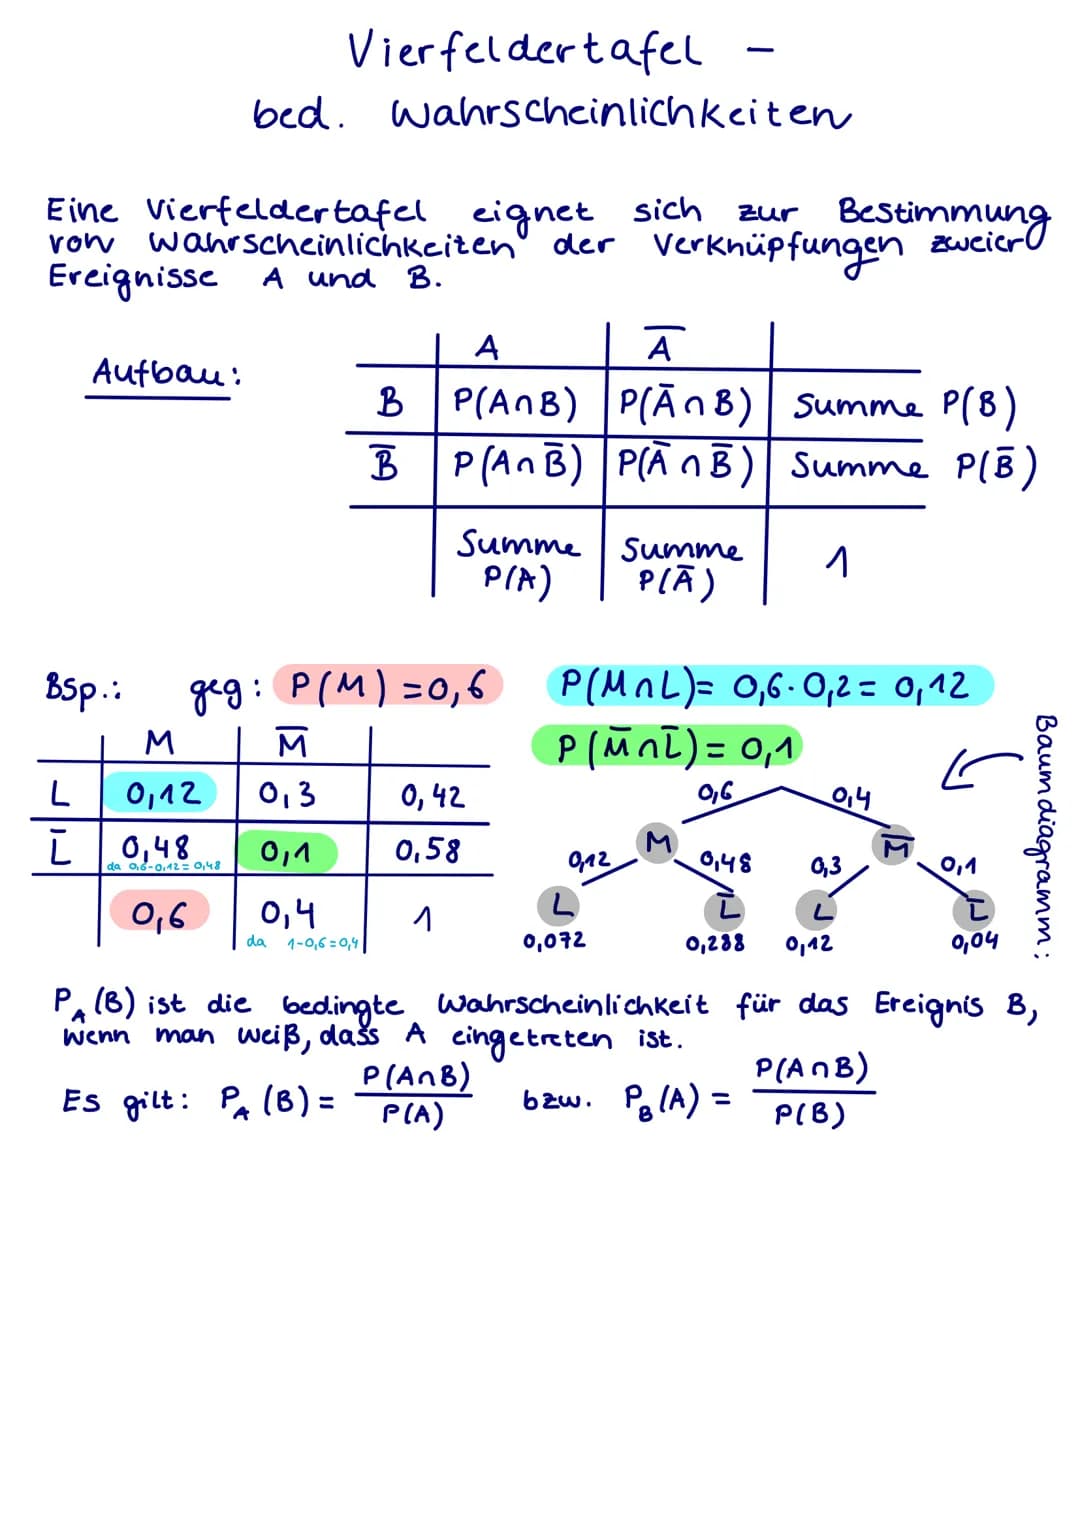 Vierfeldertafel –
bed. Wahrscheinlichkeiten
Eine Vierfeldertafel eignet sich zur Bestimmung
von Wahrscheinlichkeiten der Verknüpfungen zweier
Ereignisse A und B.
Aufbau:
A A̅
B P(A∩B) P(A̅∩B) Summe P(B)
B̅ P(A∩B̅) P(A̅∩B̅) Summe P(B̅)
Summe P(A) Summe P(A̅) 1
Bsp.: geg: P(M)=0,6 P(M∩L)= 0,6·0,2= 0,12
P(M̅∩L̅)= 0,1
M M̅
L 0,12 0,3 0,42
L̅ 0,48 0,1 0,58
da 0,6-0,12=0,48
0,6 0,4 1
da 1-0,6=0,4
Baumdiagramm:
0,6 0,4
M M̅
0,12 0,48 0,3 0,1
L L̅ L L̅
0,072 0,288 0,12 0,04
P_A(B) ist die bedingte Wahrscheinlichkeit für das Ereignis B,
wenn man weiß, dass A eingetreten ist.
Es gilt: P_A(B) = P(A∩B) / P(A) bzw. P_B(A) = P(A∩B) / P(B)